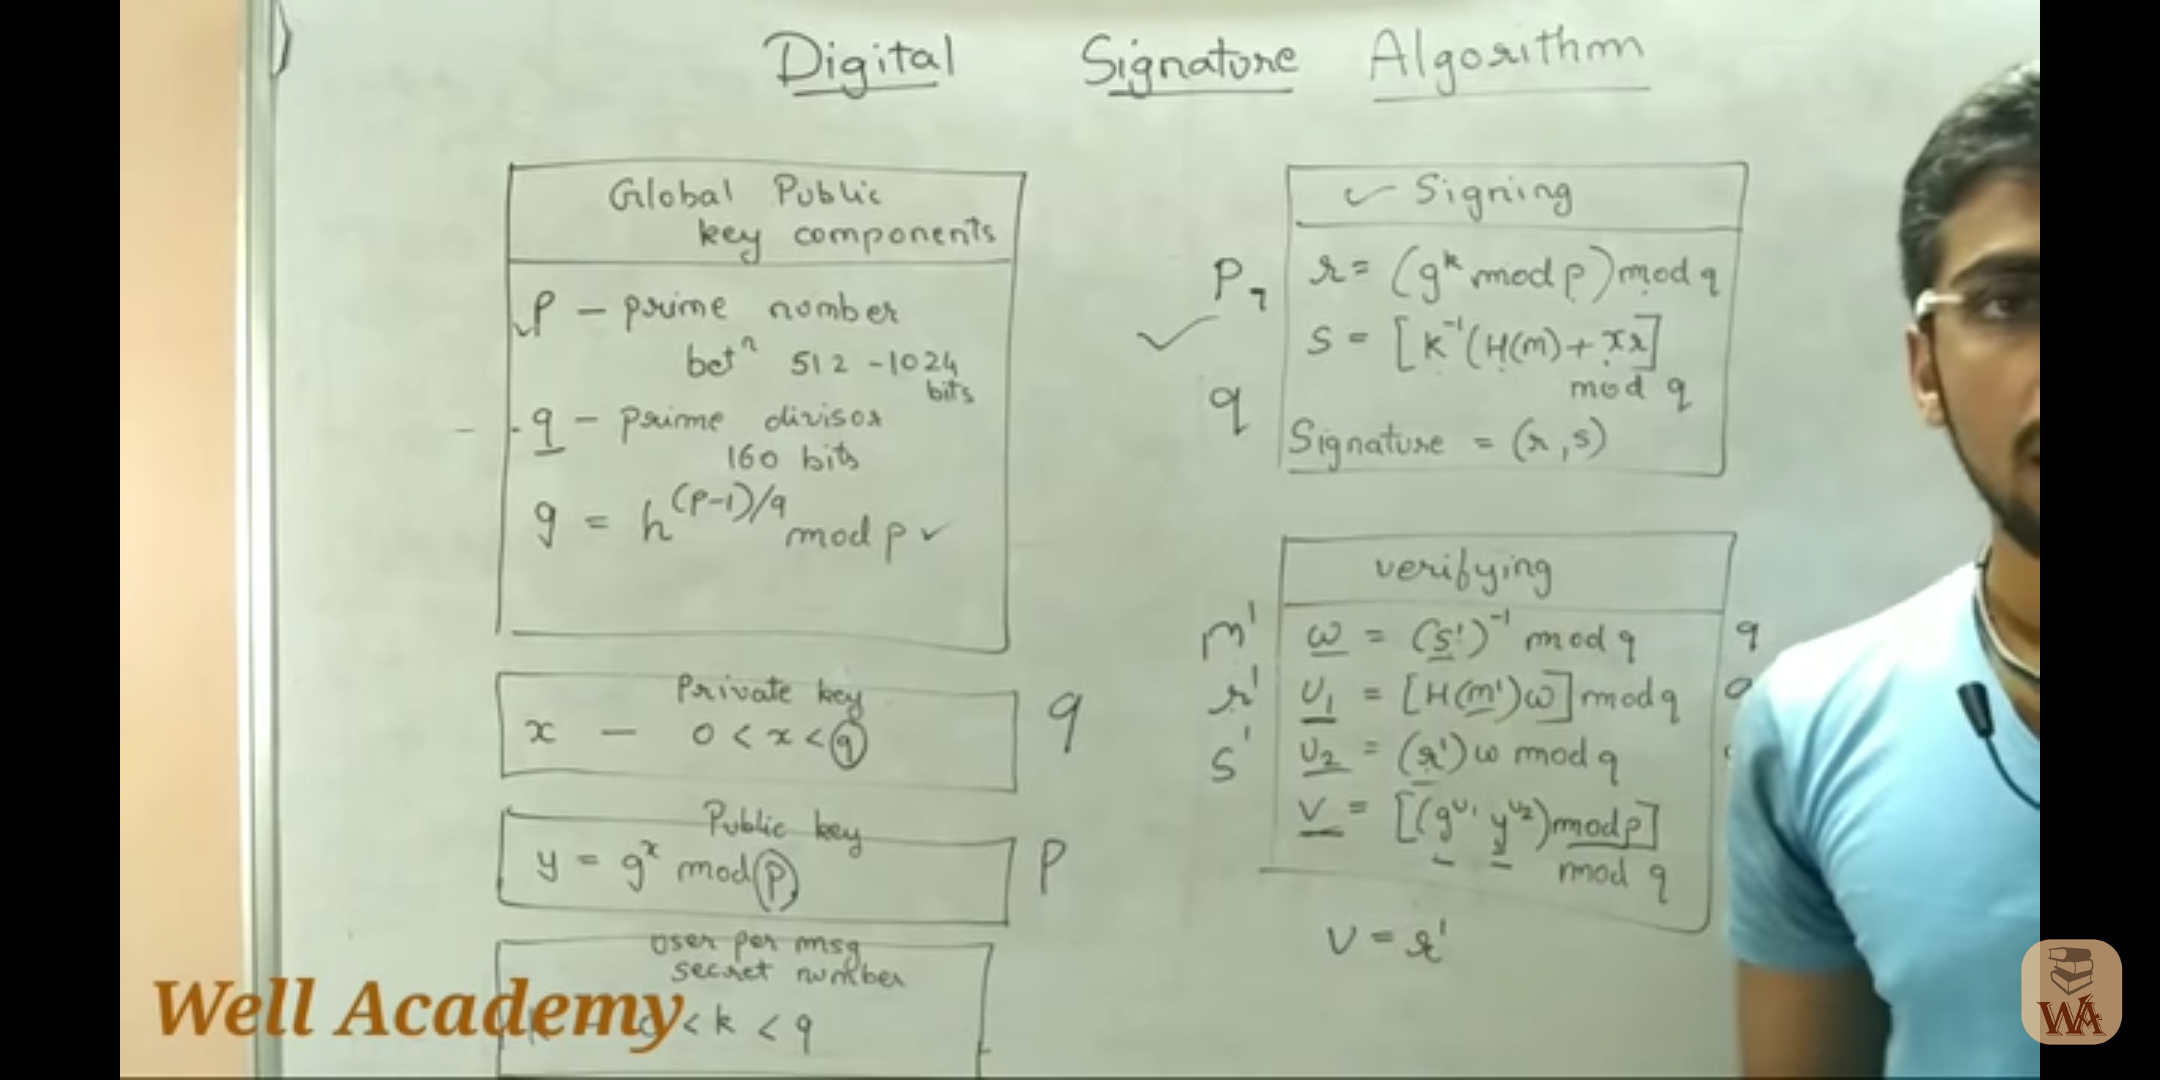 Digital Signature Algorithm
Global Public
key components
p - prime number
betⁿ 512 - 1024
bits
q - prime divisor
160 bits
g = h^(p-1)/q mod p ✓
Private key
x - 0 < x < q
q
Public key
y = g^x mod p
p
User per msg
secret number
< k < q
✓ Signing
p
r = (g^k mod p) mod q
✓
s = [k^-1 (H(m) + xr]
mod q
q
Signature = (r, s)
verifying
m'
w = (s')^-1 mod q
q
r'
U1 = [H(m')w] mod q
s'
U2 = (r')w mod q
V = [(g^u1 y^u2) mod p]
mod q
V = r'
Well Academy
WA